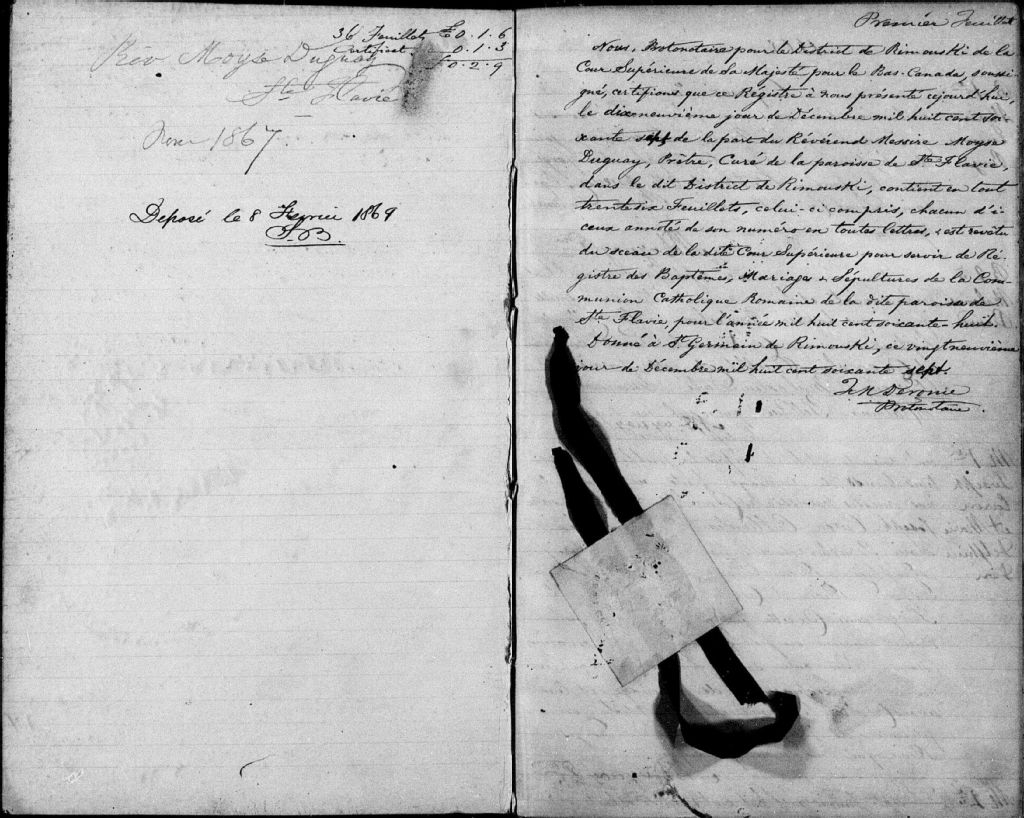 36 Feuillets £0.1.6
Certificat 0.1.3
£0.2.9
Rév. Moyse Duguay
Ste Flavie
1867
Déposé le 8 Février 1869
J.B.
Premier Feuillet
Nous, Protonotaire pour le District de Rimouski de la
Cour Supérieure de Sa Majesté pour le Bas-Canada, soussi-
gné, certifions que ce Régistre à nous présenté cejourd'hui,
le dixneuvième jour de Décembre mil huit cent soi-
xante sept de la part du Révérend Messire Moyse
Duguay, Prêtre, Curé de la paroisse de Ste Flavie,
dans le dit District de Rimouski, contient en tout
trente six Feuillets, celui-ci compris, chacun d'i-
ceux annoté de son numéro en toutes lettres, & est revêtu
du sceau de la dite Cour Supérieure pour servir de Ré-
gistre des Baptêmes, Mariages & Sépultures de la Com-
munion Catholique Romaine de la dite paroisse de
Ste Flavie, pour l'année mil huit cent soixante-huit.
Donné à St Germain de Rimouski, ce vingtneuvième
jour de Décembre mil huit cent soixante sept.
Protonotaire.